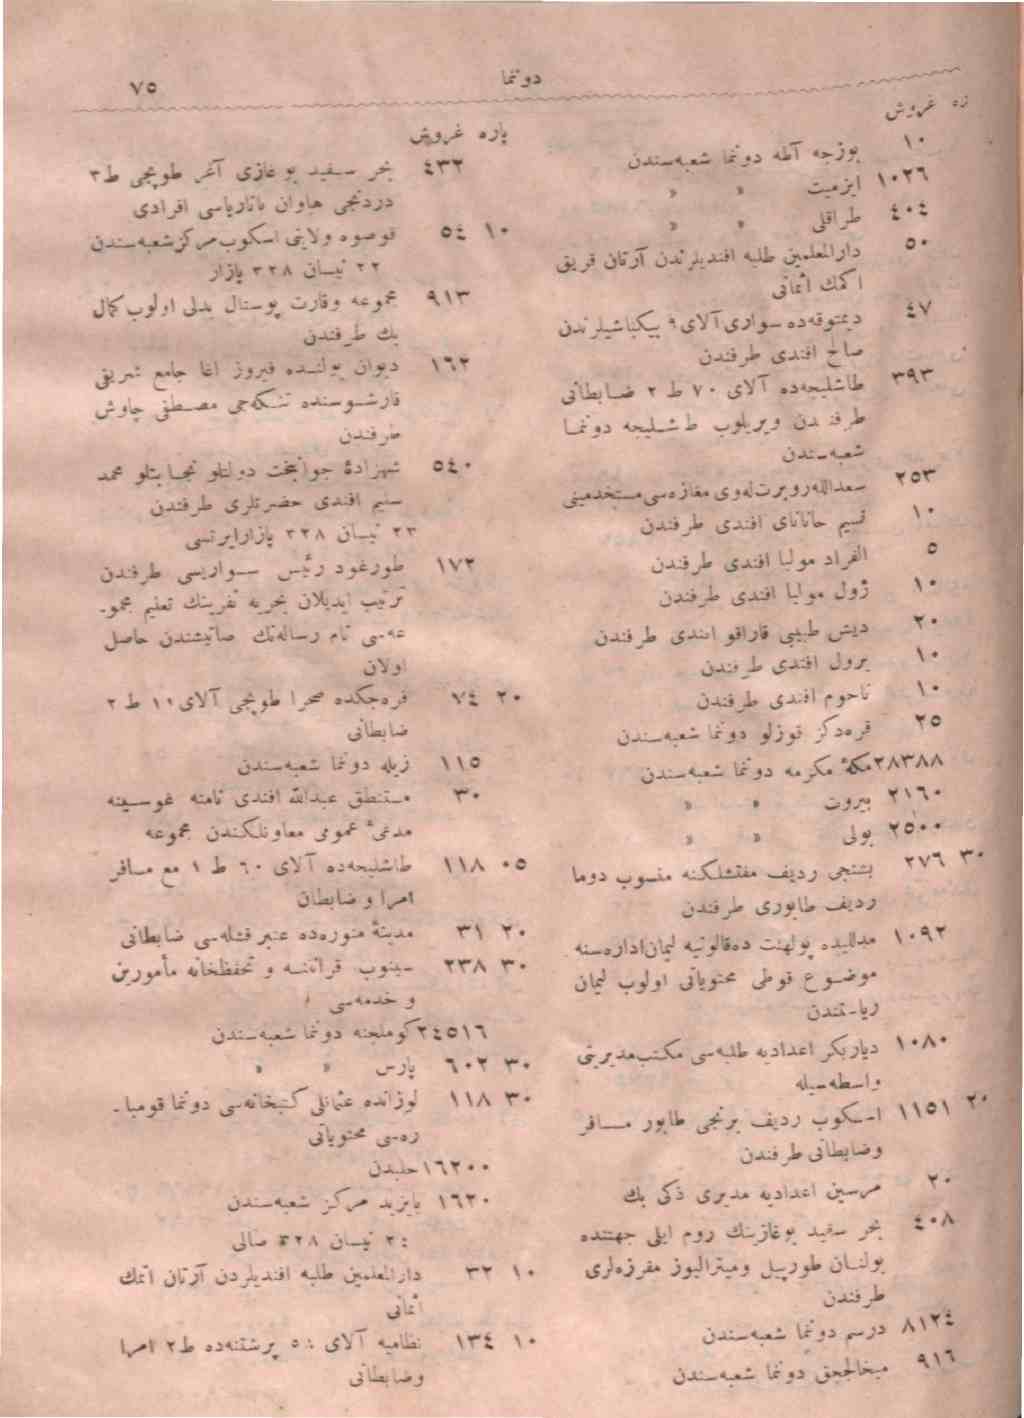 دونما
٧٥
پاره غروش
١٠ بوزجه آطه دونما شعبه‌سندن
١٠٢٦ ازميت » »
٤٠٤ طراقلی » »
٥٠ دارالمعلمين طلبه افنديلرندن آرتان فريق
اكمك اثمانی
٤٧ ديمتوقه‌ده سواری آلای ٩ بيكباشيلرندن
صالح افندی طرفندن
٣٩٣ طاشليجه‌ده آلای ٧٠ ط ٢ ضابطانی
طرفندن ويريلوب طاشليجه دونما
شعبه‌سندن
٢٥٣ سعدالله روبرت له‌وی مغازه‌سی مستخدمينی
١٠ نسيم حاناتای افندی طرفندن
٥ الفراد موليا افندی طرفندن
١٠ ژول موليا افندی طرفندن
٢٠ ديش طبيبی قاراقو افندی طرفندن
١٠ برول افندی طرفندن
١٠ ناحوم افندی طرفندن
٢٥ قره‌دكز قوزلو دونما شعبه‌سندن
٢٨٣٨٨ مكۀ مكرمه دونما شعبه‌سندن
٢١٦٠ بيروت » »
٢٥٠٠ بولی » »
٣٠ ٢٧٦ بشنجی رديف مفتشلكنه منسوب دوما
رديف طابوری طرفندن
١٠٩٢ مدللیده پولهنت ده‌قالوتيه ليمان اداره‌سنه
موضوع قوطی محتوياتی اولوب ليمان
رياستندن
١٠٨٠ دياربكر اعداديه طلبه‌سی مكتب مديريتی
واسطه‌سيله
٢٠ ١١٥١ اسكوب رديف برنجی طابور مسافر
وضابطانی طرفندن
٢٠ مرسين اعداديه مديری ذكی بك
٤٠٨ بحر سفيد بوغازينك روم ايلی جهتنده
بولنان طورپيل وميتراليوز مفرزه‌لری
طرفندن
٨١٢٤ درسم دونما شعبه‌سندن
٩١٦ ميخالجق دونما شعبه‌سندن
پاره غروش
٤٣٢ بحر سفيد بوغازی آغر طوپجی ط ٣
دردنجی هاوان باتارياسی افرادی
١٠ ٥٤ قوصوه ولايتی اسكوب مركز شعبه‌سندن
٢٢ نيسان ٣٢٨ پازار
٩١٣ مجموعه وقارت پوستال بدلی اولوب كمال
بك طرفندن
١٦٢ ديوان يولنده فيروز اغا جامع شريفی
قارشوسنده تنكه‌جی مصطفی چاوش
طرفندن
٥٤٠ شهزادۀ جوانبخت دولتلو نجابتلو محمد
سليم افندی حضرتلری طرفندن
٢٣ نيسان ٣٢٨ پازارايرتسی
١٧٢ طورغود رئيس سواريسی طرفندن
ترتيب ايديلان بحريه نفرينك تعليم مجمو-
عه‌سی نام رساله‌نك صاتيشندن حاصل
اولان
٢٠ ٧٤ قره‌جكده صحرا طوپجی آلای ١١ ط ٢
ضابطانی
١١٥ زيله دونما شعبه‌سندن
٣٠ مستنطق عبدالله افندی نامنه غوسينه
مدعیء عمومی معاونلكندن مجموعه
٠٥ ١١٨ طاشليجه‌ده آلای ٦٠ ط ١ مع مسافر
امرا و ضابطان
٢٠ ٣١ مدينۀ منوره‌ده عنبر قشله‌سی ضابطانی
٣٠ ٢٣٨ سينوب قرانتنه و تحفظخانه مأمورين
و خدمه‌سی
٢٤٥١٦ كوملجنه دونما شعبه‌سندن
٣٠ ٦٠٢ پارس » »
٣٠ ١١٨ لوزانده عثمانلی كتبخانه‌سی دونما قومبا-
ره‌سی محتوياتی
١٦٢٠٠ حلبدن
١٦٢٠ بايزيد مركز شعبه‌سندن
٢٤ نيسان ٣٢٨ صالی
١٠ ٣٢ دارالمعلمين طلبه افنديلردن آرتان اتمك
اثمانی
١٠ ١٣٤ نظاميه آلای ٥٤ پرشتنه‌ده ط ٢ امرا
وضابطانی